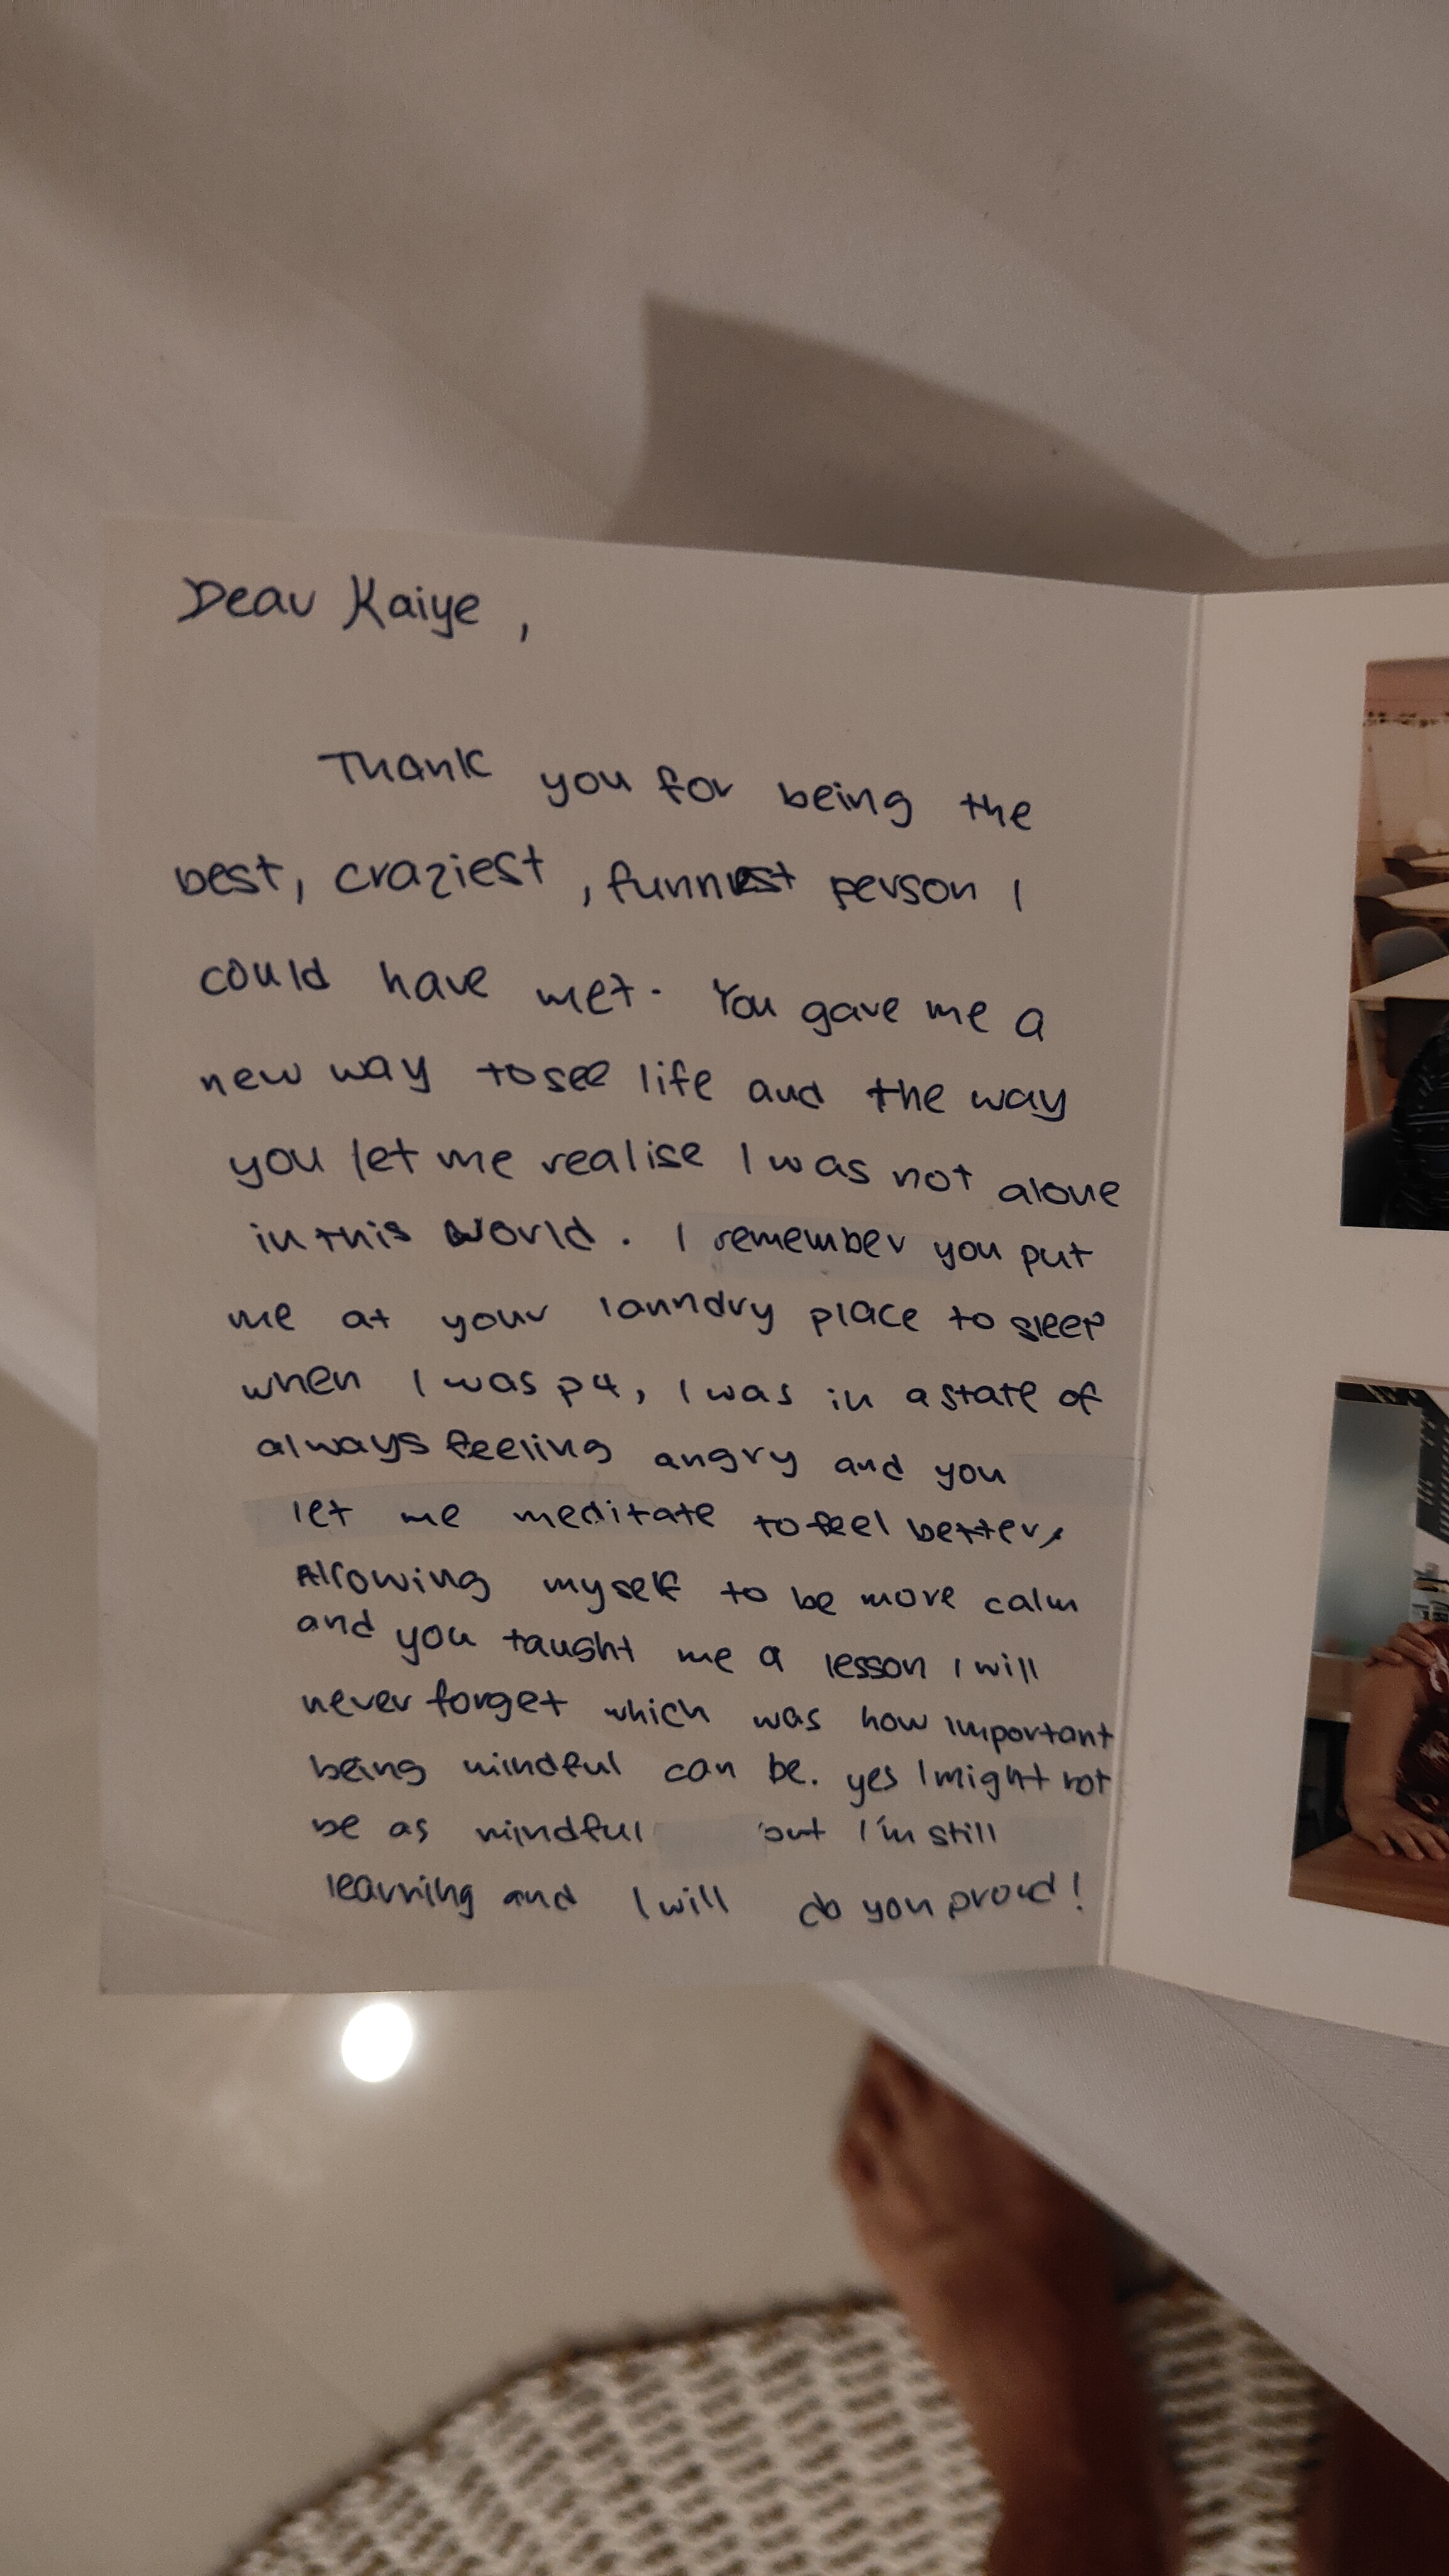 Dear Kaiye,
Thank you for being the
best, craziest, funniest person I
could have met. You gave me a
new way to see life and the way
you let me realise I was not alone
in this world. I remember you put
me at your laundry place to sleep
when I was p4, I was in a state of
always feeling angry and you
let me meditate to feel better,
Allowing myself to be more calm
and you taught me a lesson I will
never forget which was how important
being mindful can be. yes I might not
be as mindful but I'm still
learning and I will do you proud!